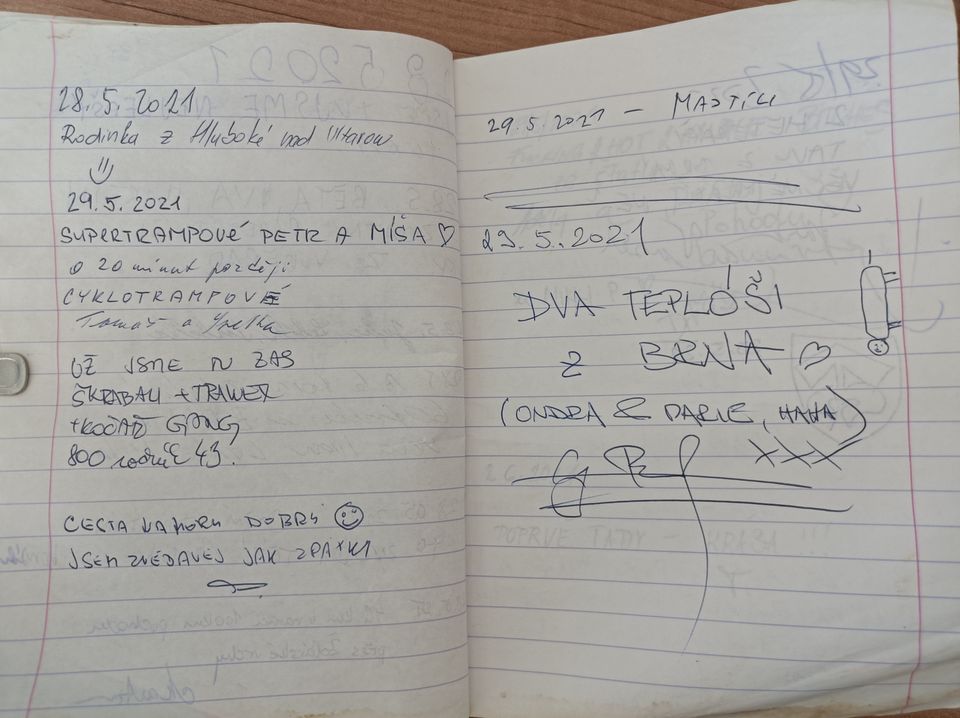 28.5.2021
Rodinka z Hluboké nad Vltavou
29.5.2021
SUPERTRAMPOVÉ PETR A MÍŠA ♡
o 20 minut později
CYKLOTRAMPOVÉ
Tomáš a
UŽ JSME TU ZAS
ŠKRABALI + TRAWEX
+KOČÁD GANG
800 43.
CESTA NAHORU DOBRÝ
JSEM ZVĚDAVEJ JAK ZPÁTKY
29.5.2021 –
29.5.2021
DVA TEPLÓŠI
Z BRNA ♡
(ONDRA & DARLE, HAHA)
XXX